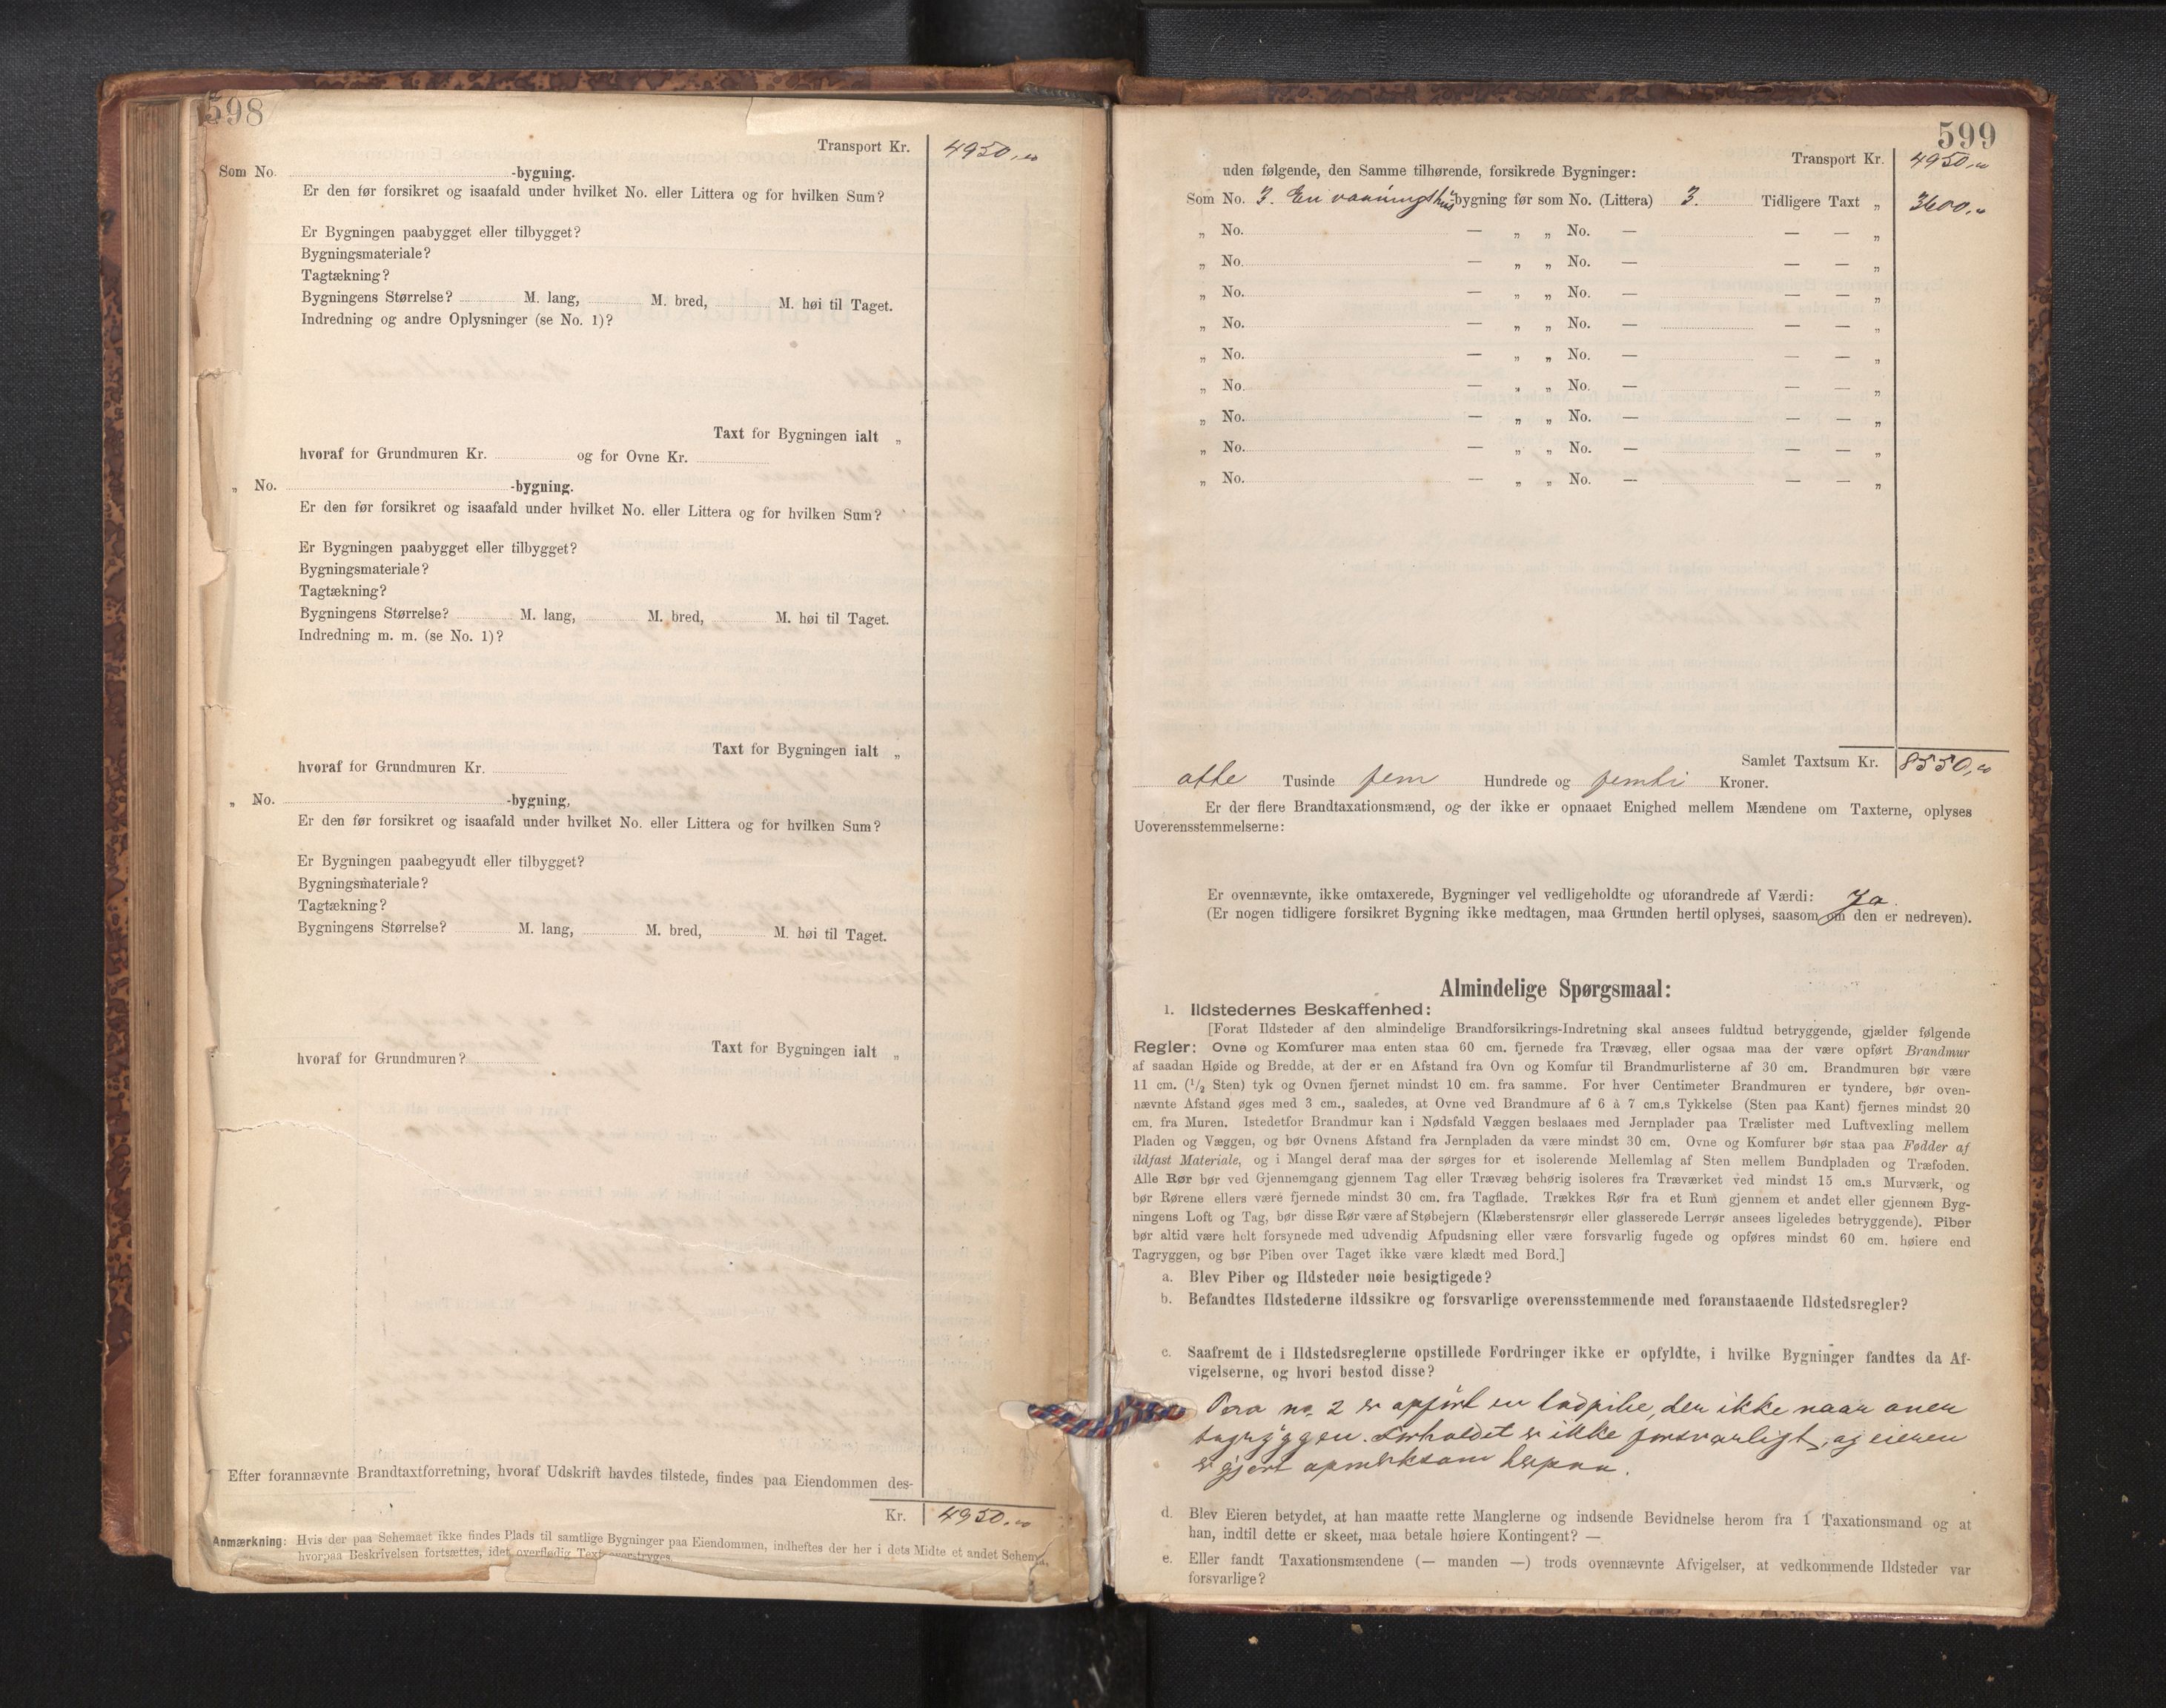 598
Transport Kr. 4950,00
Som No. -bygning.
Er den før forsikret og isaafald under hvilket No. eller Littera og for hvilken Sum?
Er Bygningen paabygget eller tilbygget?
Bygningsmateriale?
Tagtækning?
Bygningens Størrelse? M. lang, M. bred, M. høi til Taget.
Indredning og andre Oplysninger (se No. 1)?
Taxt for Bygningen ialt „
hvoraf for Grundmuren Kr. og for Ovne Kr.
„ No. -bygning.
Er den før forsikret og isaafald under hvilket No. eller Littera og for hvilken Sum?
Er Bygningen paabygget eller tilbygget?
Bygningsmateriale?
Tagtækning?
Bygningens Størrelse? M. lang, M. bred, M. høi til Taget.
Indredning m. m. (se No. 1)?
Taxt for Bygningen ialt „
hvoraf for Grundmuren Kr.
„ No. -bygning,
Er den før forsikret og isaafald under hvilket No. eller Littera og for hvilken Sum?
Er Bygningen paabegyndt eller tilbygget?
Bygningsmateriale?
Tagtækning?
Bygningens Størrelse? M. lang, M. bred, M. høi til Taget.
Taxt for Bygningen ialt „
hvoraf for Grundmuren?
Efter forannævnte Brandtaxtforretning, hvoraf Udskrift havdes tilstede, findes paa Eiendommen des-
Kr. 4950,00
Anmærkning: Hvis der paa Schemaet ikke findes Plads til samtlige Bygninger paa Eiendommen, indheftes der her i dets Midte et andet Schema,
hvorpaa Beskrivelsen fortsættes, idet overflødig Text overstryges.
599
Transport Kr. 4950,00
uden følgende, den Samme tilhørende, forsikrede Bygninger:
Som No. 3. En vaaningshus bygning før som No. (Littera) 3. Tidligere Taxt „ 3600,00
„ No. — „ „ No. — — — „
„ No. — „ „ No. — — — „
„ No. — „ „ No. — — — „
„ No. — „ „ No. — — — „
„ No. — „ „ No. — — — „
„ No. — „ „ No. — — — „
„ No. — „ „ No. — — — „
„ No. — „ „ No. — — — „
„ No. — „ „ No. — — — „
Samlet Taxtsum Kr. 8550,00
otte Tusinde fem Hundrede og femti Kroner.
Er der flere Brandtaxationsmænd, og der ikke er opnaaet Enighed mellem Mændene om Taxterne, oplyses
Uoverensstemmelserne:
Er ovennævnte, ikke omtaxerede, Bygninger vel vedligeholdte og uforandrede af Værdi: Ja.
(Er nogen tidligere forsikret Bygning ikke medtagen, maa Grunden hertil oplyses, saasom om den er nedreven).
Almindelige Spørgsmaal:
1. Ildstedernes Beskaffenhed:
[Forat Ildsteder af den almindelige Brandforsikrings-Indretning skal ansees fuldtud betryggende, gjælder følgende
Regler: Ovne og Komfurer maa enten staa 60 cm. fjernede fra Trævæg, eller ogsaa maa der være opført Brandmur
af saadan Høide og Bredde, at der er en Afstand fra Ovn og Komfur til Brandmurlisterne af 30 cm. Brandmuren bør være
11 cm. (1/2 Sten) tyk og Ovnen fjernet mindst 10 cm. fra samme. For hver Centimeter Brandmuren er tyndere, bør oven-
nævnte Afstand øges med 3 cm., saaledes, at Ovne ved Brandmure af 6 à 7 cm.s Tykkelse (Sten paa Kant) fjernes mindst 20
cm. fra Muren. Istedetfor Brandmur kan i Nødsfald Væggen beslaaes med Jernplader paa Trælister med Luftvexling mellem
Pladen og Væggen, og bør Ovnens Afstand fra Jernpladen da være mindst 30 cm. Ovne og Komfurer bør staa paa Fødder af
ildfast Materiale, og i Mangel deraf maa der sørges for et isolerende Mellemlag af Sten mellem Bundpladen og Træfoden.
Alle Rør bør ved Gjennemgang gjennem Tag eller Trævæg behørig isoleres fra Træværket ved mindst 15 cm.s Murværk, og
bør Rørene ellers være fjernede mindst 30 cm. fra Tagflade. Trækkes Rør fra et Rum gjennem et andet eller gjennem Byg-
ningens Loft og Tag, bør disse Rør være af Støbejern (Klæberstensrør eller glasserede Lerrør ansees ligeledes betryggende). Piber
bør altid være helt forsynede med udvendig Afpudsning eller være forsvarlig fugede og opføres mindst 60 cm. høiere end
Tagryggen, og bør Piben over Taget ikke være klædt med Bord.]
a. Blev Piber og Ildsteder nøie besigtigede?
b. Befandtes Ildstederne ildssikre og forsvarlige overensstemmende med foranstaaende Ildstedsregler?
c. Saafremt de i Ildstedsreglerne opstillede Fordringer ikke er opfyldte, i hvilke Bygninger fandtes da Af-
vigelserne, og hvori bestod disse?
Paa no. 2 er opført en ladpibe, der ikke naar over
tagryggen. Forholdet er ikke forsvarligt, og eieren
er gjort opmerksom herpaa.
d. Blev Eieren betydet, at han maatte rette Manglerne og indsende Bevidnelse herom fra 1 Taxationsmand og at
han, indtil dette er skeet, maa betale høiere Kontingent? —
e. Eller fandt Taxationsmændene (— manden —) trods ovennævnte Afvigelser, at vedkommende Ildsteder var
forsvarlige?